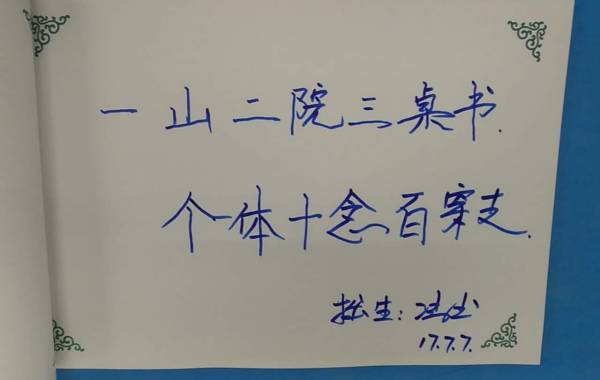 一山二院三桌书.
个体十念百案支.
拙生:
17.7.7.